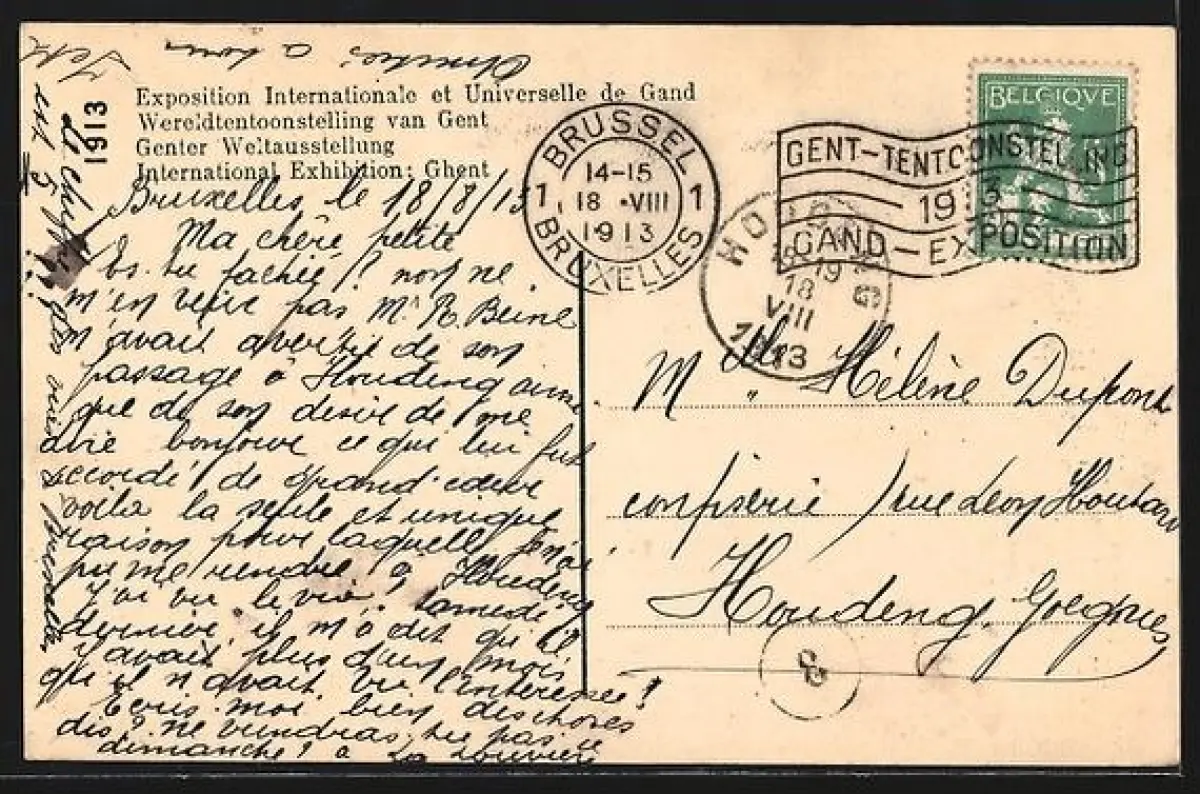 1913
Exposition Internationale et Universelle de Gand
Wereldtentoonstelling van Gent
Genter Weltausstellung
International Exhibition: Ghent
Bruxelles, le 18/8/13
Ma chère petite
Es. tu fachée? non ne
m'en veux pas Mr R. Beine
m'avait avertie de son
passage à Houdeng ainsi
que de son désire de me
dire bonjour ce qui lui fut
accordé de grand cœur
voilà la seule et unique
raison pour laquelle je n'ai
pu me rendre à Houdeng
J'ai vu le vieux samedi
dernier, il m'a dit qu'il
y avait plus d'un mois
qu'il n'avait vu l'intéressée!
Ecris-moi bien des choses
dis? ne viendras-tu pas ce
dimanche? à La Louvière
BRUSSEL
1 14-15 1
18 VIII
1913
BRUXELLES
GENT-TENTOONSTELLING
1913
GAND-EXPOSITION
BELGIQUE
HO
18
VIII
1913
Mlle Hélène Dupont
confiserie rue Léon Houtart
Houdeng, Goegnies
8